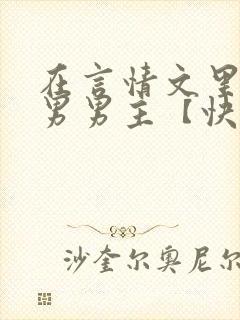 在言情文里
男男主【快
沙奎尔奥尼尔